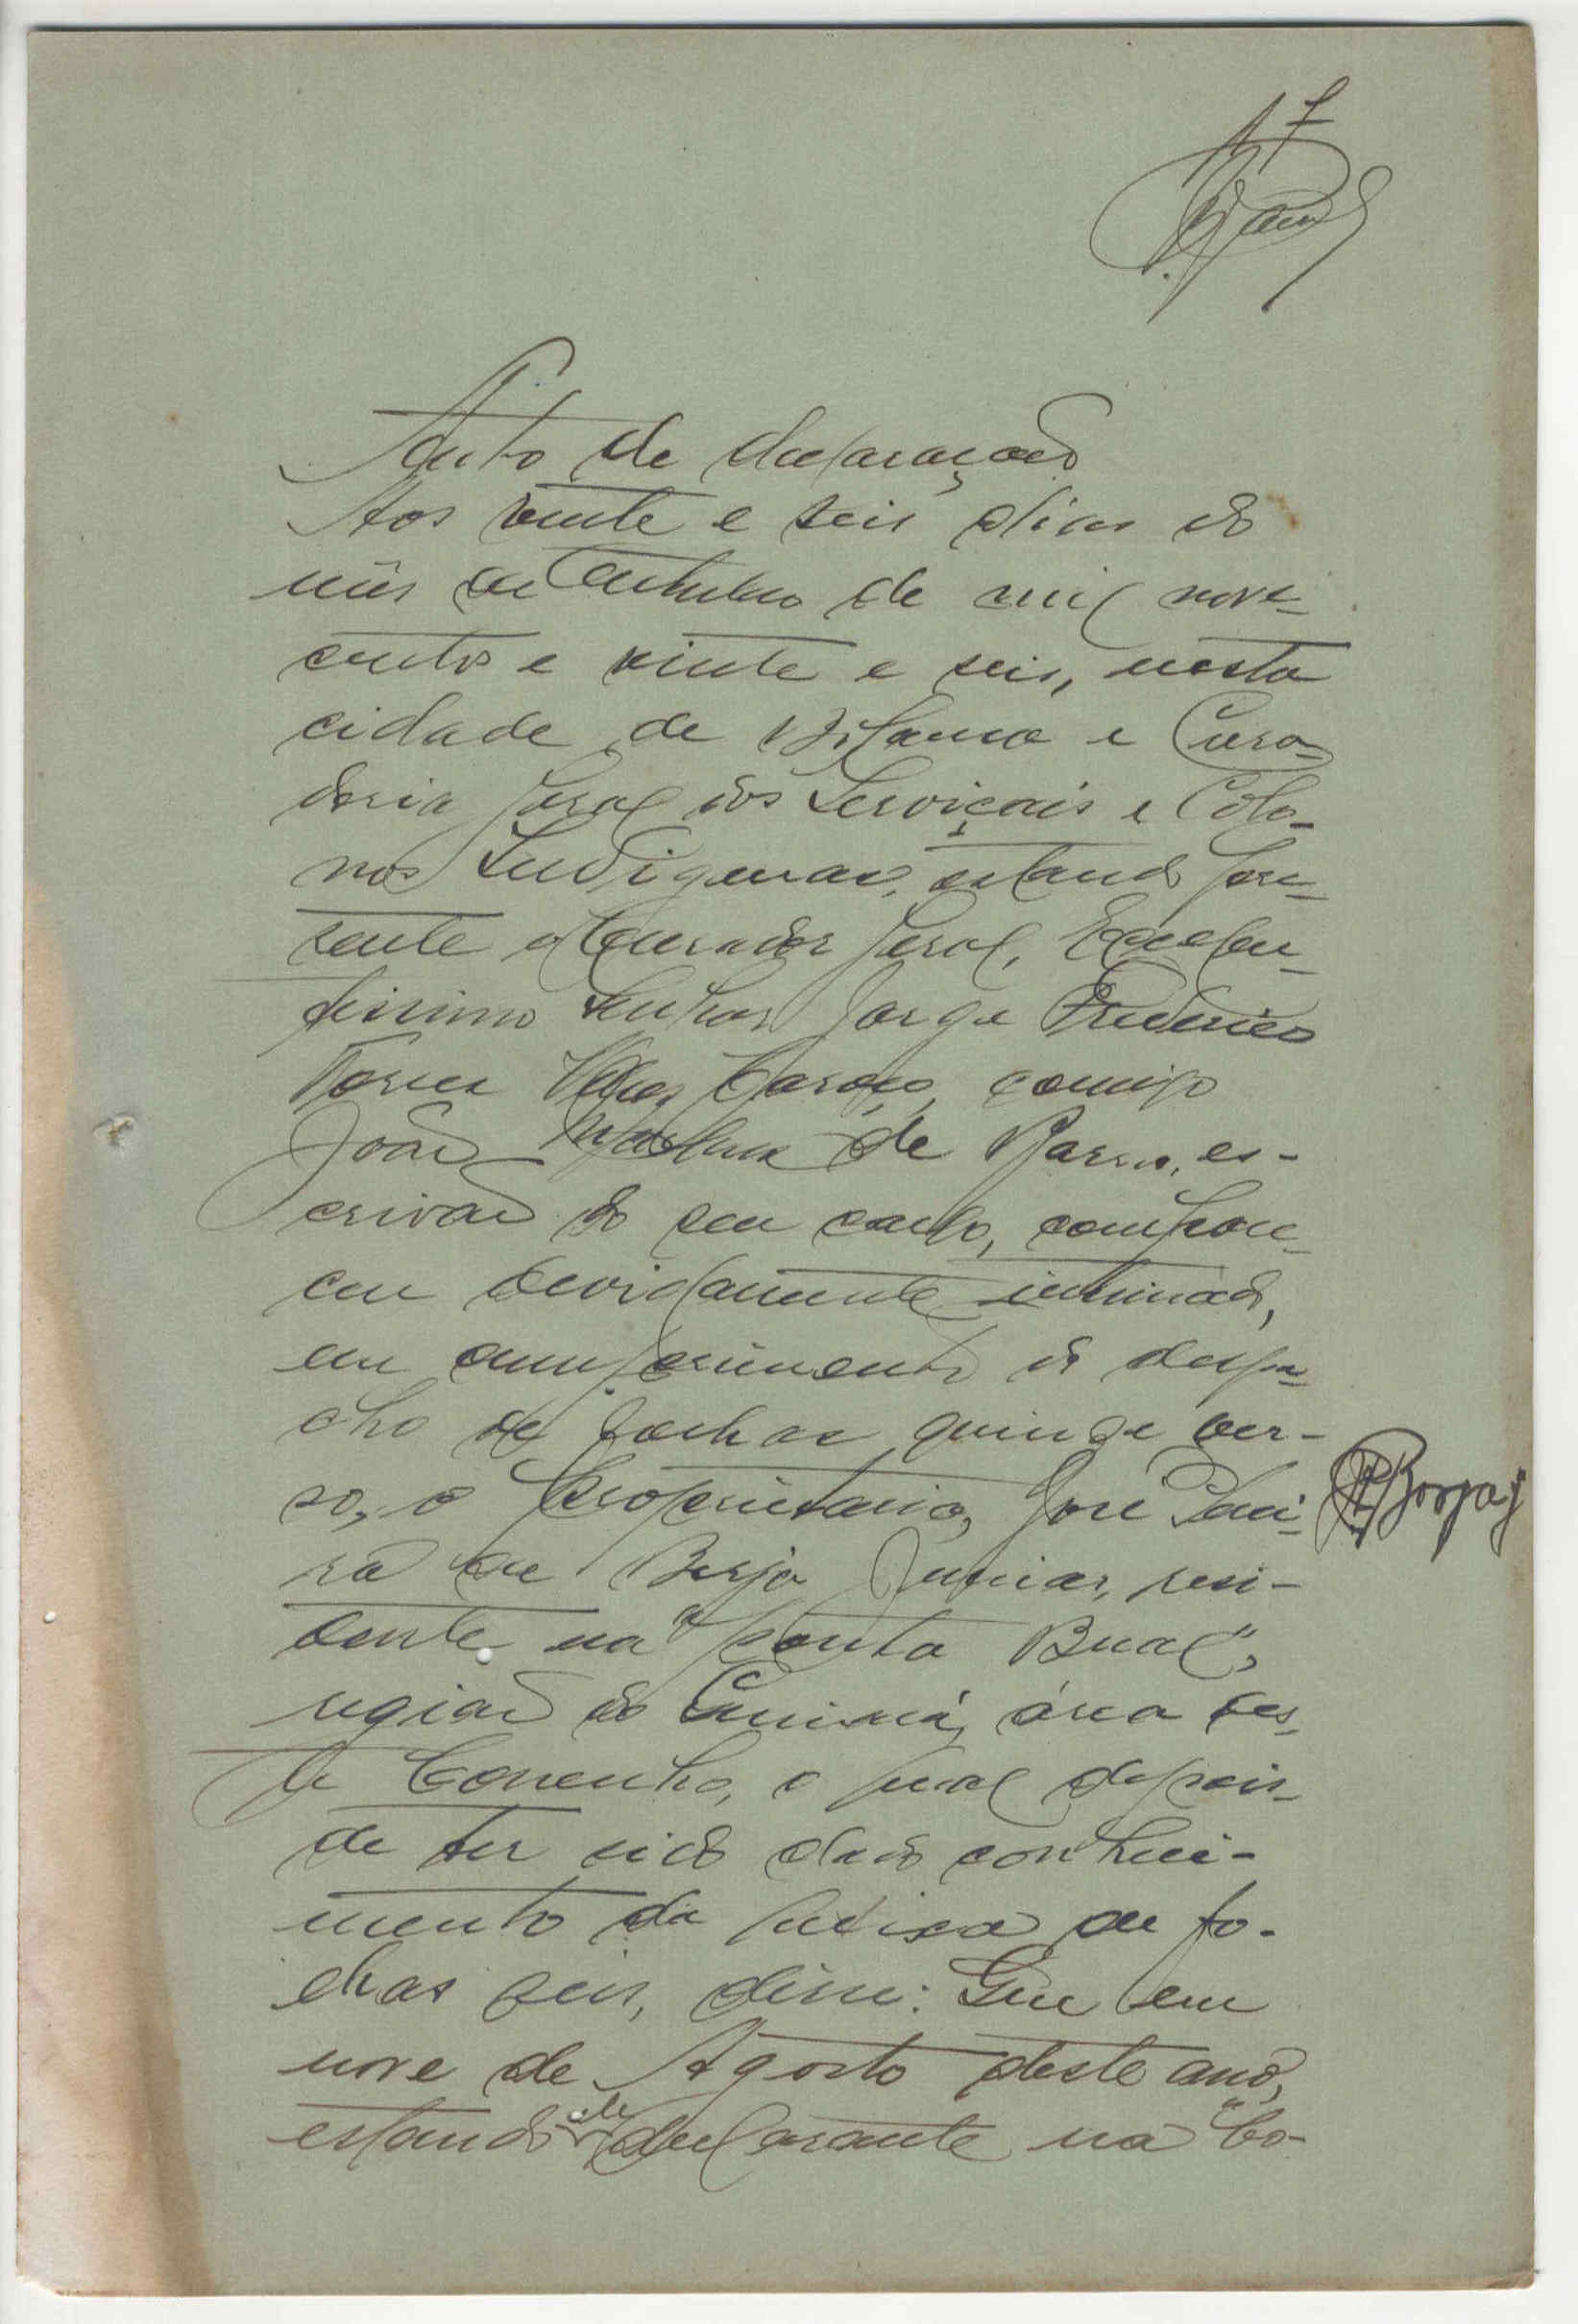 17
Auto de declarações
Aos vinte e seis dias do
mês de Outubro de mil nove-
centos e vinte e seis, nesta
cidade de Bolama e Cura-
doria Geral dos Serviçais e Colo-
nos Indigenas, estando pre-
sente o Curador Geral, Excelen-
tissimo Senhor Jorge Frederico
Torres Caroço, comigo
João de Barros, es-
crivão do seu cargo, compare-
ceu devidamente intimado,
em cumprimento do despa-
cho de folhas quinze ver-
so, o proprietario, José
de Borja Junior, resi-
dente na "Ponta Bual",
região do área des-
te Concelho, o qual depois
de ter sido dado conheci-
mento da queixa de fo-
lhas seis, disse: Que em
nove de Agosto deste ano,
estando ele declarante na "Co-
Borja J